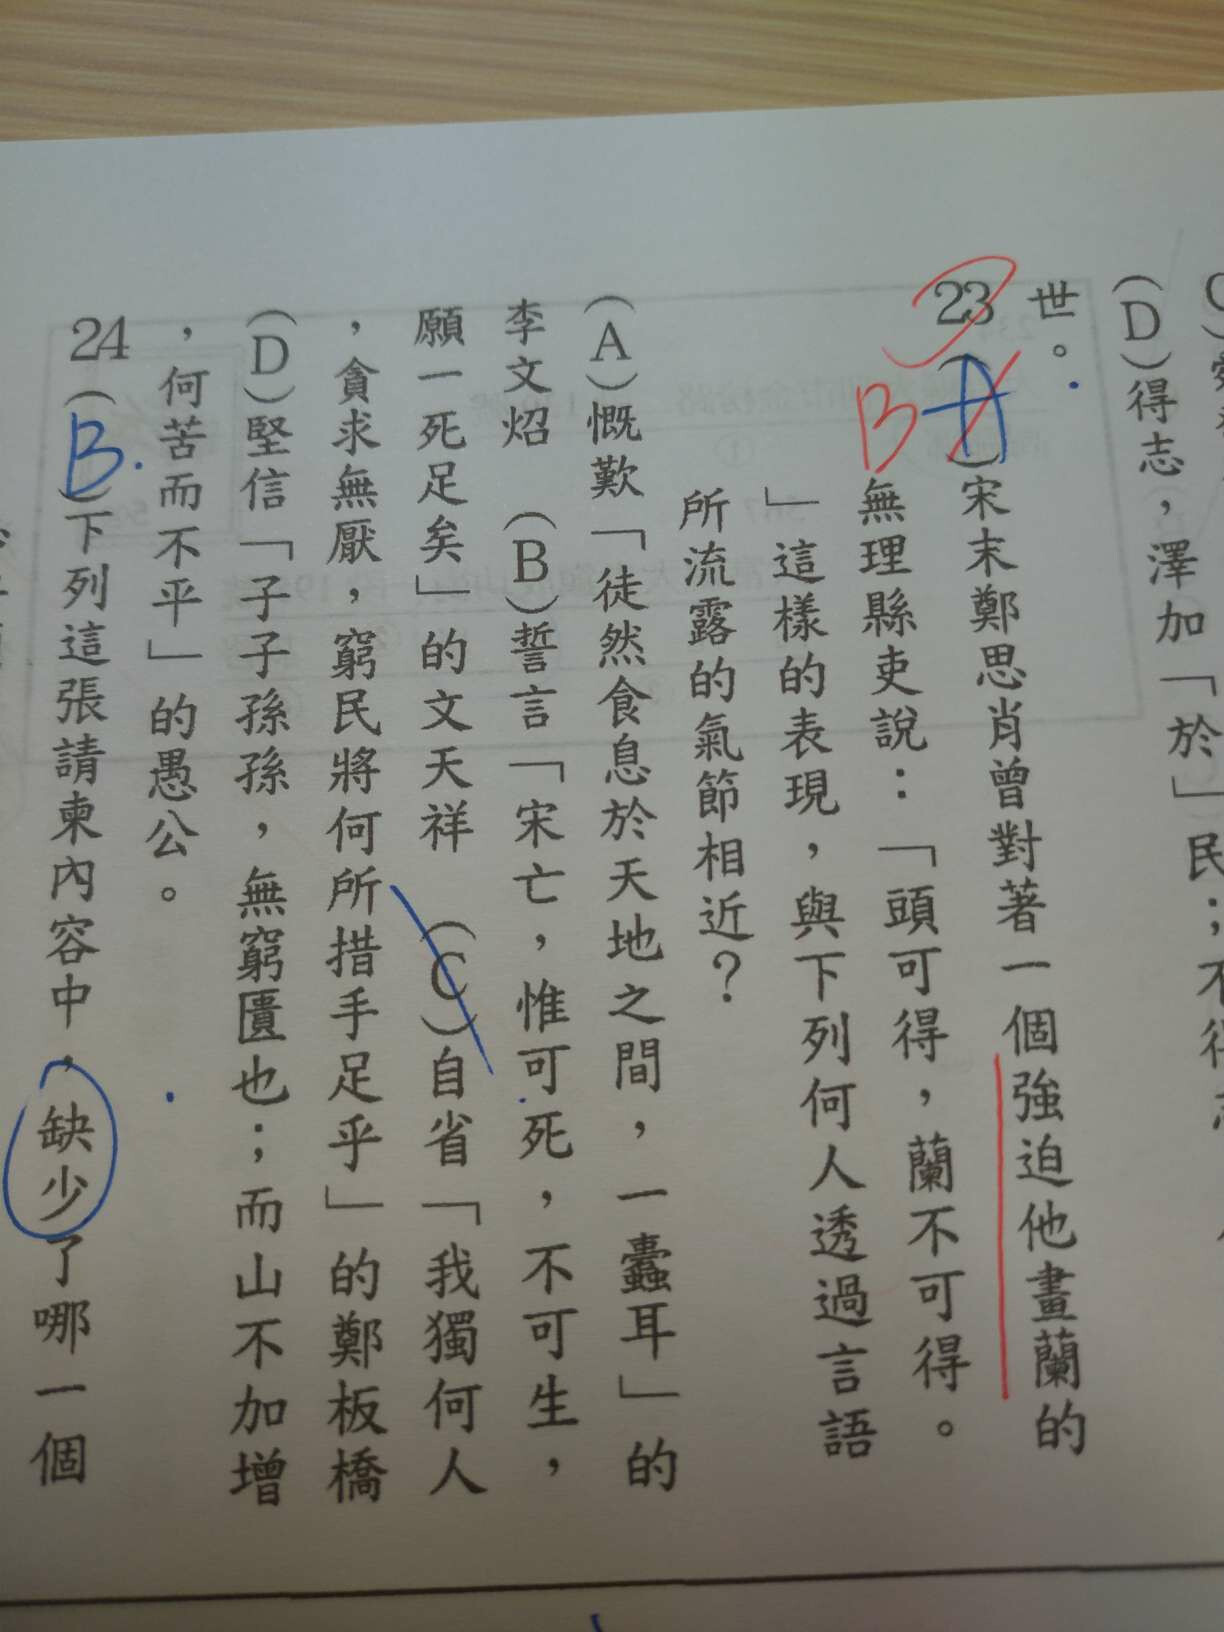 (D)得志，澤加「於」民；不得
世。
23 (A)宋末鄭思肖曾對著一個強迫他畫蘭的
B
無理縣吏說：「頭可得，蘭不可得。
」這樣的表現，與下列何人透過言語
所流露的氣節相近？
(A)慨歎「徒然食息於天地之間，一蠹耳」的
李文炤　(B)誓言「宋亡，惟可死，不可生，
願一死足矣」的文天祥　(C)自省「我獨何人
，貪求無厭，窮民將何所措手足乎」的鄭板橋
(D)堅信「子子孫孫，無窮匱也；而山不加增
，何苦而不平」的愚公。
24 (B)下列這張請柬內容中，缺少了哪一個